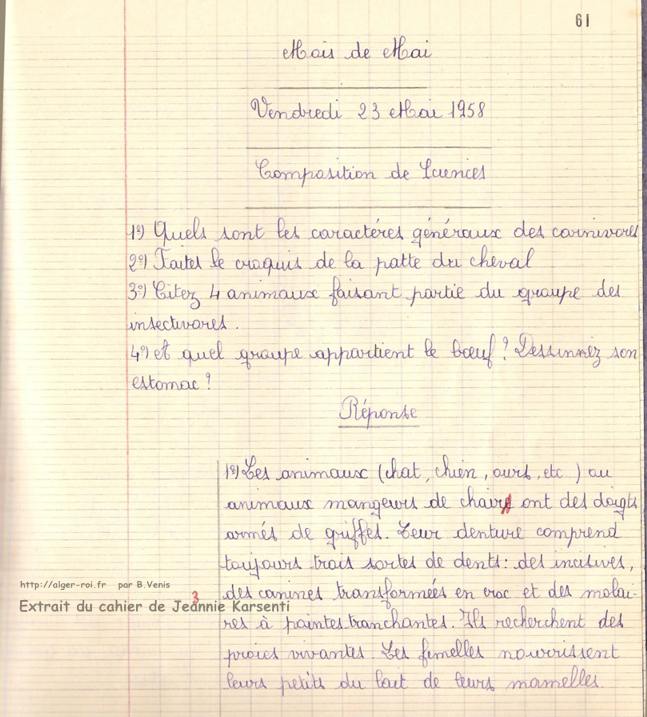 61
Mois de Mai
Vendredi 23 Mai 1958
Composition de Sciences
1º) Quels sont les caractères généraux des carnivores
2º) Faites le croquis de la patte du cheval
3º) Citez 4 animaux faisant partie du groupe des
insectivores.
4º) A quel groupe appartient le bœuf ? Dessinnez son
estomac ?
Réponse
1º) Les animaux (chat, chien, ours, etc ) ou
animaux mangeurs de chairs ont des doigts
armés de griffes. Leur denture comprend
toujours trois sortes de dents : des incisives,
http://alger-roi.fr par B.Venis
des canines transformées en croc et des molai-
3
Extrait du cahier de Jeannie Karsenti
res à pointes tranchantes. Ils recherchent des
proies vivantes. Les femelles nourrissent
leurs petits du lait de leurs mamelles.